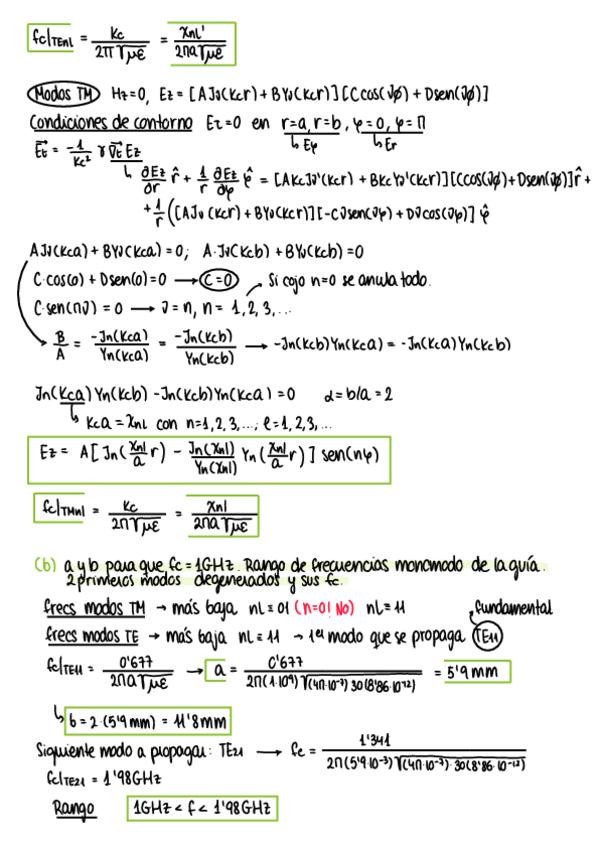 fc|TEnl = Kc / 2π√με = χnl' / 2πa√με
Modos TM Hz=0, Ez = [AJν(Kcr) + BYν(Kcr)][Ccos(νφ) + Dsen(νφ)]
Condiciones de contorno Et=0 en r=a, r=b, φ=0, φ=π
↳ Eφ ↳ Er
Et = -1/Kc² γ ∇t Ez
↳ ∂Ez/∂r r̂ + 1/r ∂Ez/∂φ φ̂ = [AKcJν'(Kcr) + BKcYν'(Kcr)][Ccos(νφ) + Dsen(νφ)] r̂ +
+ 1/r ([AJν(Kcr) + BYν(Kcr)][-Cνsen(νφ) + Dνcos(νφ)] φ̂
AJν(Kca) + BYν(Kca) = 0; A·Jν(Kcb) + BYν(Kcb) = 0
C·cos(0) + Dsen(0) = 0 → C=0 Si cojo n=0 se anula todo.
C·sen(πν) = 0 → ν = n, n = 1, 2, 3, ...
B/A = -Jn(Kca)/Yn(Kca) = -Jn(Kcb)/Yn(Kcb) → -Jn(Kcb)Yn(Kca) = -Jn(Kca)Yn(Kcb)
Jn(Kca)Yn(Kcb) - Jn(Kcb)Yn(Kca) = 0 α = b/a = 2
↳ Kca = χnl con n=1,2,3,...; l=1,2,3,...
Ez = A[Jn(χnl/a r) - Jn(χnl)/Yn(χnl) Yn(χnl/a r)] sen(nφ)
fc|TMnl = Kc / 2π√με = χnl / 2πa√με
(b) a y b para que fc = 1GHz. Rango de frecuencias monomodo de la guía.
2 primeros modos degenerados y sus fc.
frecs modos TM → más baja nl = 01 (n=0! No) nl = 11 fundamental
frecs modos TE → más baja nl = 11 → 1er modo que se propaga TE11
fc|TE11 = 0'677 / 2πa√με → a = 0'677 / 2π(1·10⁹)√(4π·10⁻⁷)30(8'86·10⁻¹²) = 5'9mm
↳ b = 2·(5'9mm) = 11'8mm
Siguiente modo a propagar: TE21 → fc = 1'341 / 2π(5'9·10⁻³)√(4π·10⁻⁷)·30(8'86·10⁻¹²)
fc|TE21 = 1'98GHz
Rango 1GHz < f < 1'98GHz